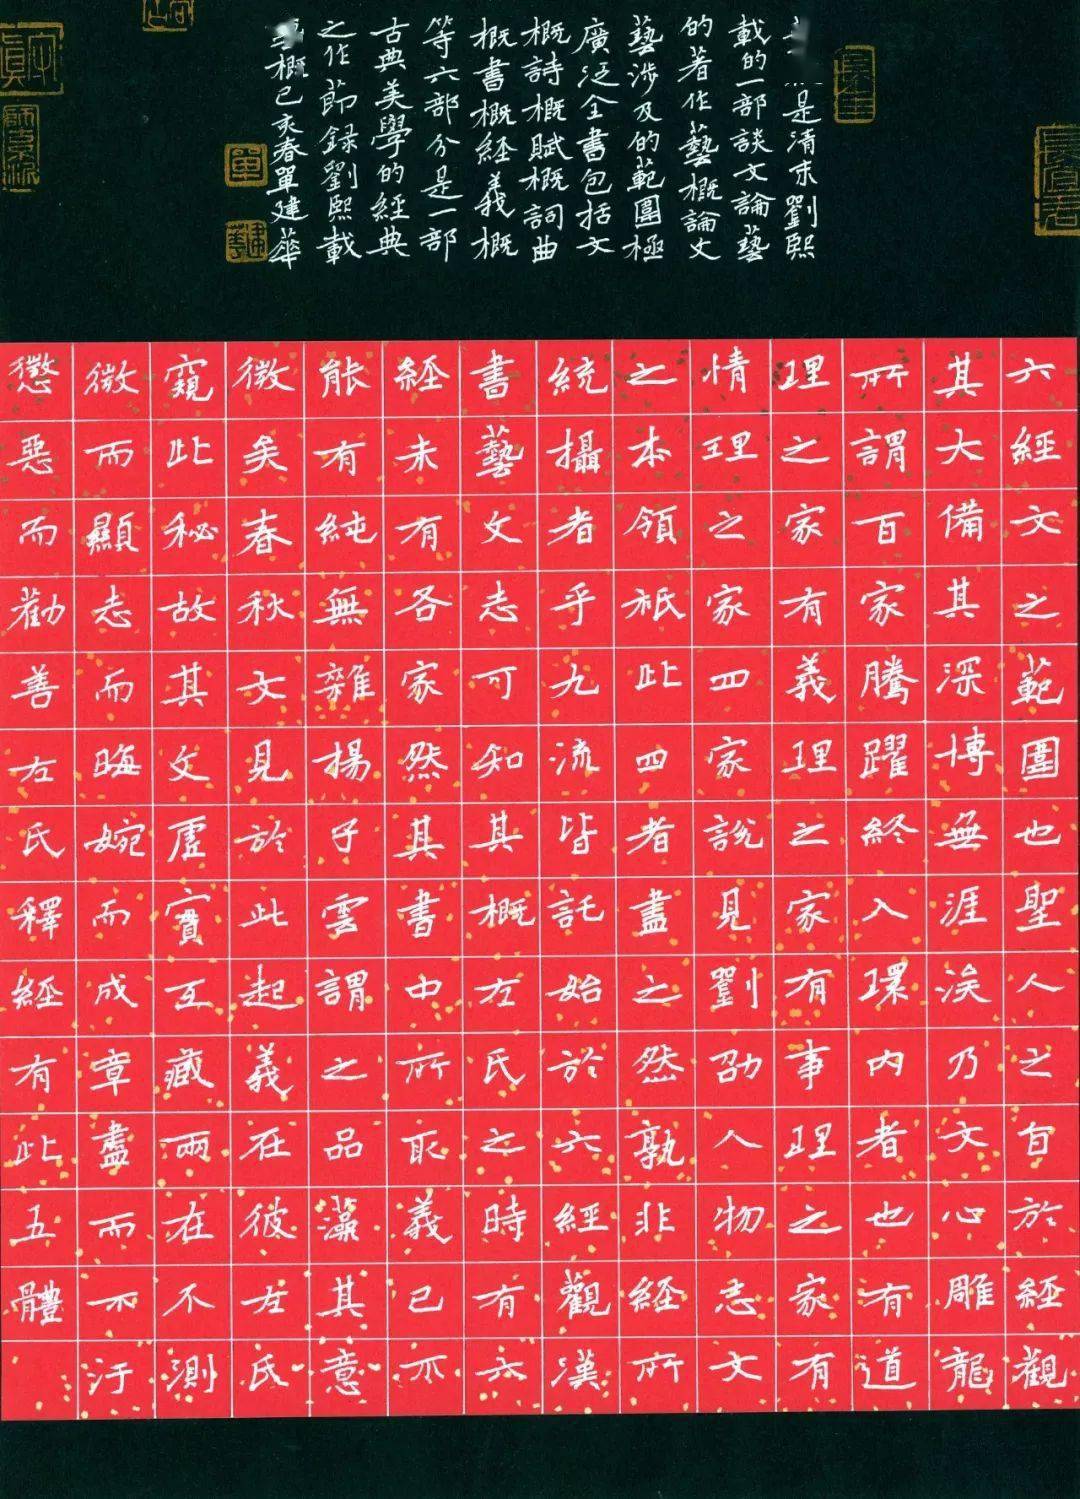 是清末劉熙
載的一部談文論藝
的著作藝概論文
藝涉及的範圍極
廣泛全書包括文
概詩概賦概詞曲
概書概經義概
等六部分是一部
古典美學的經典
之作節録劉熙載
概己亥春單建華
單
建華
六經文之範圍也聖人之旨於經觀
其大備其深博無涯涘乃文心雕龍
所謂百家騰躍終入環內者也有道
理之家有義理之家有事理之家有
情理之家四家說見劉劭人物志文
之本領祇此四者盡之然孰非經所
統攝者乎九流皆託始於六經觀漢
書藝文志可知其概左氏之時有六
經未有各家然其書中所取義已不
能有純無雜揚子雲謂之品藻其意
微矣春秋文見於此起義在彼左氏
窺此秘故其文虛實互藏兩在不測
微而顯志而晦婉而成章盡而不汙
懲惡而勸善左氏釋經有此五體